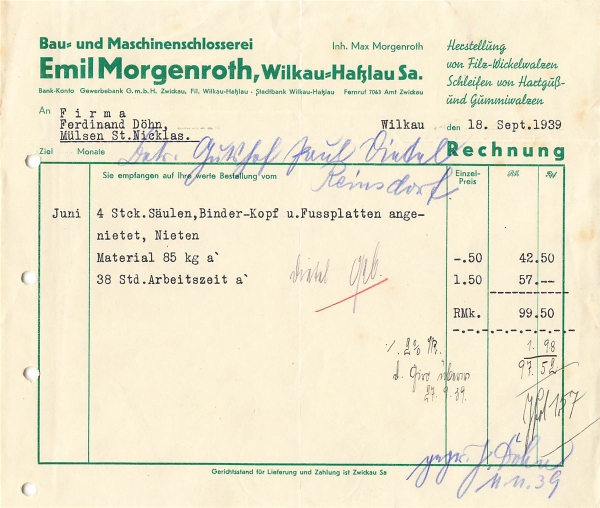 Bau- und Maschinenschlosserei
Inh. Max Morgenroth
Emil Morgenroth, Wilkau-Haßlau Sa.
Bank-Konto Gewerbebank G.m.b.H. Zwickau, Fil. Wilkau-Haßlau · Stadtbank Wilkau-Haßlau Fernruf 7063 Amt Zwickau
Herstellung
von Filz-Wickelwalzen
Schleifen von Hartguß-
und Gummiwalzen
An Firma
Ferdinand Döhn,
Mülsen St.Nicklas.
Wilkau den 18. Sept.1939
Ziel Monate
Betr. Gutshof Paul Dietel
Reinsdorf
Rechnung
Sie empfangen auf Ihre werte Bestellung vom
Einzel-Preis RM. Rpf
Juni 4 Stck.Säulen,Binder-Kopf u.Fussplatten ange-
nietet, Nieten
Material 85 kg a` -.50 42.50
38 Std.Arbeitszeit a` 1.50 57.--
RMk. 99.50
Dietel
2%
1.98
97.52
d. Giro
27.9.39.
157
J. Döhn
11.11.39
Gerichtsstand für Lieferung und Zahlung ist Zwickau Sa